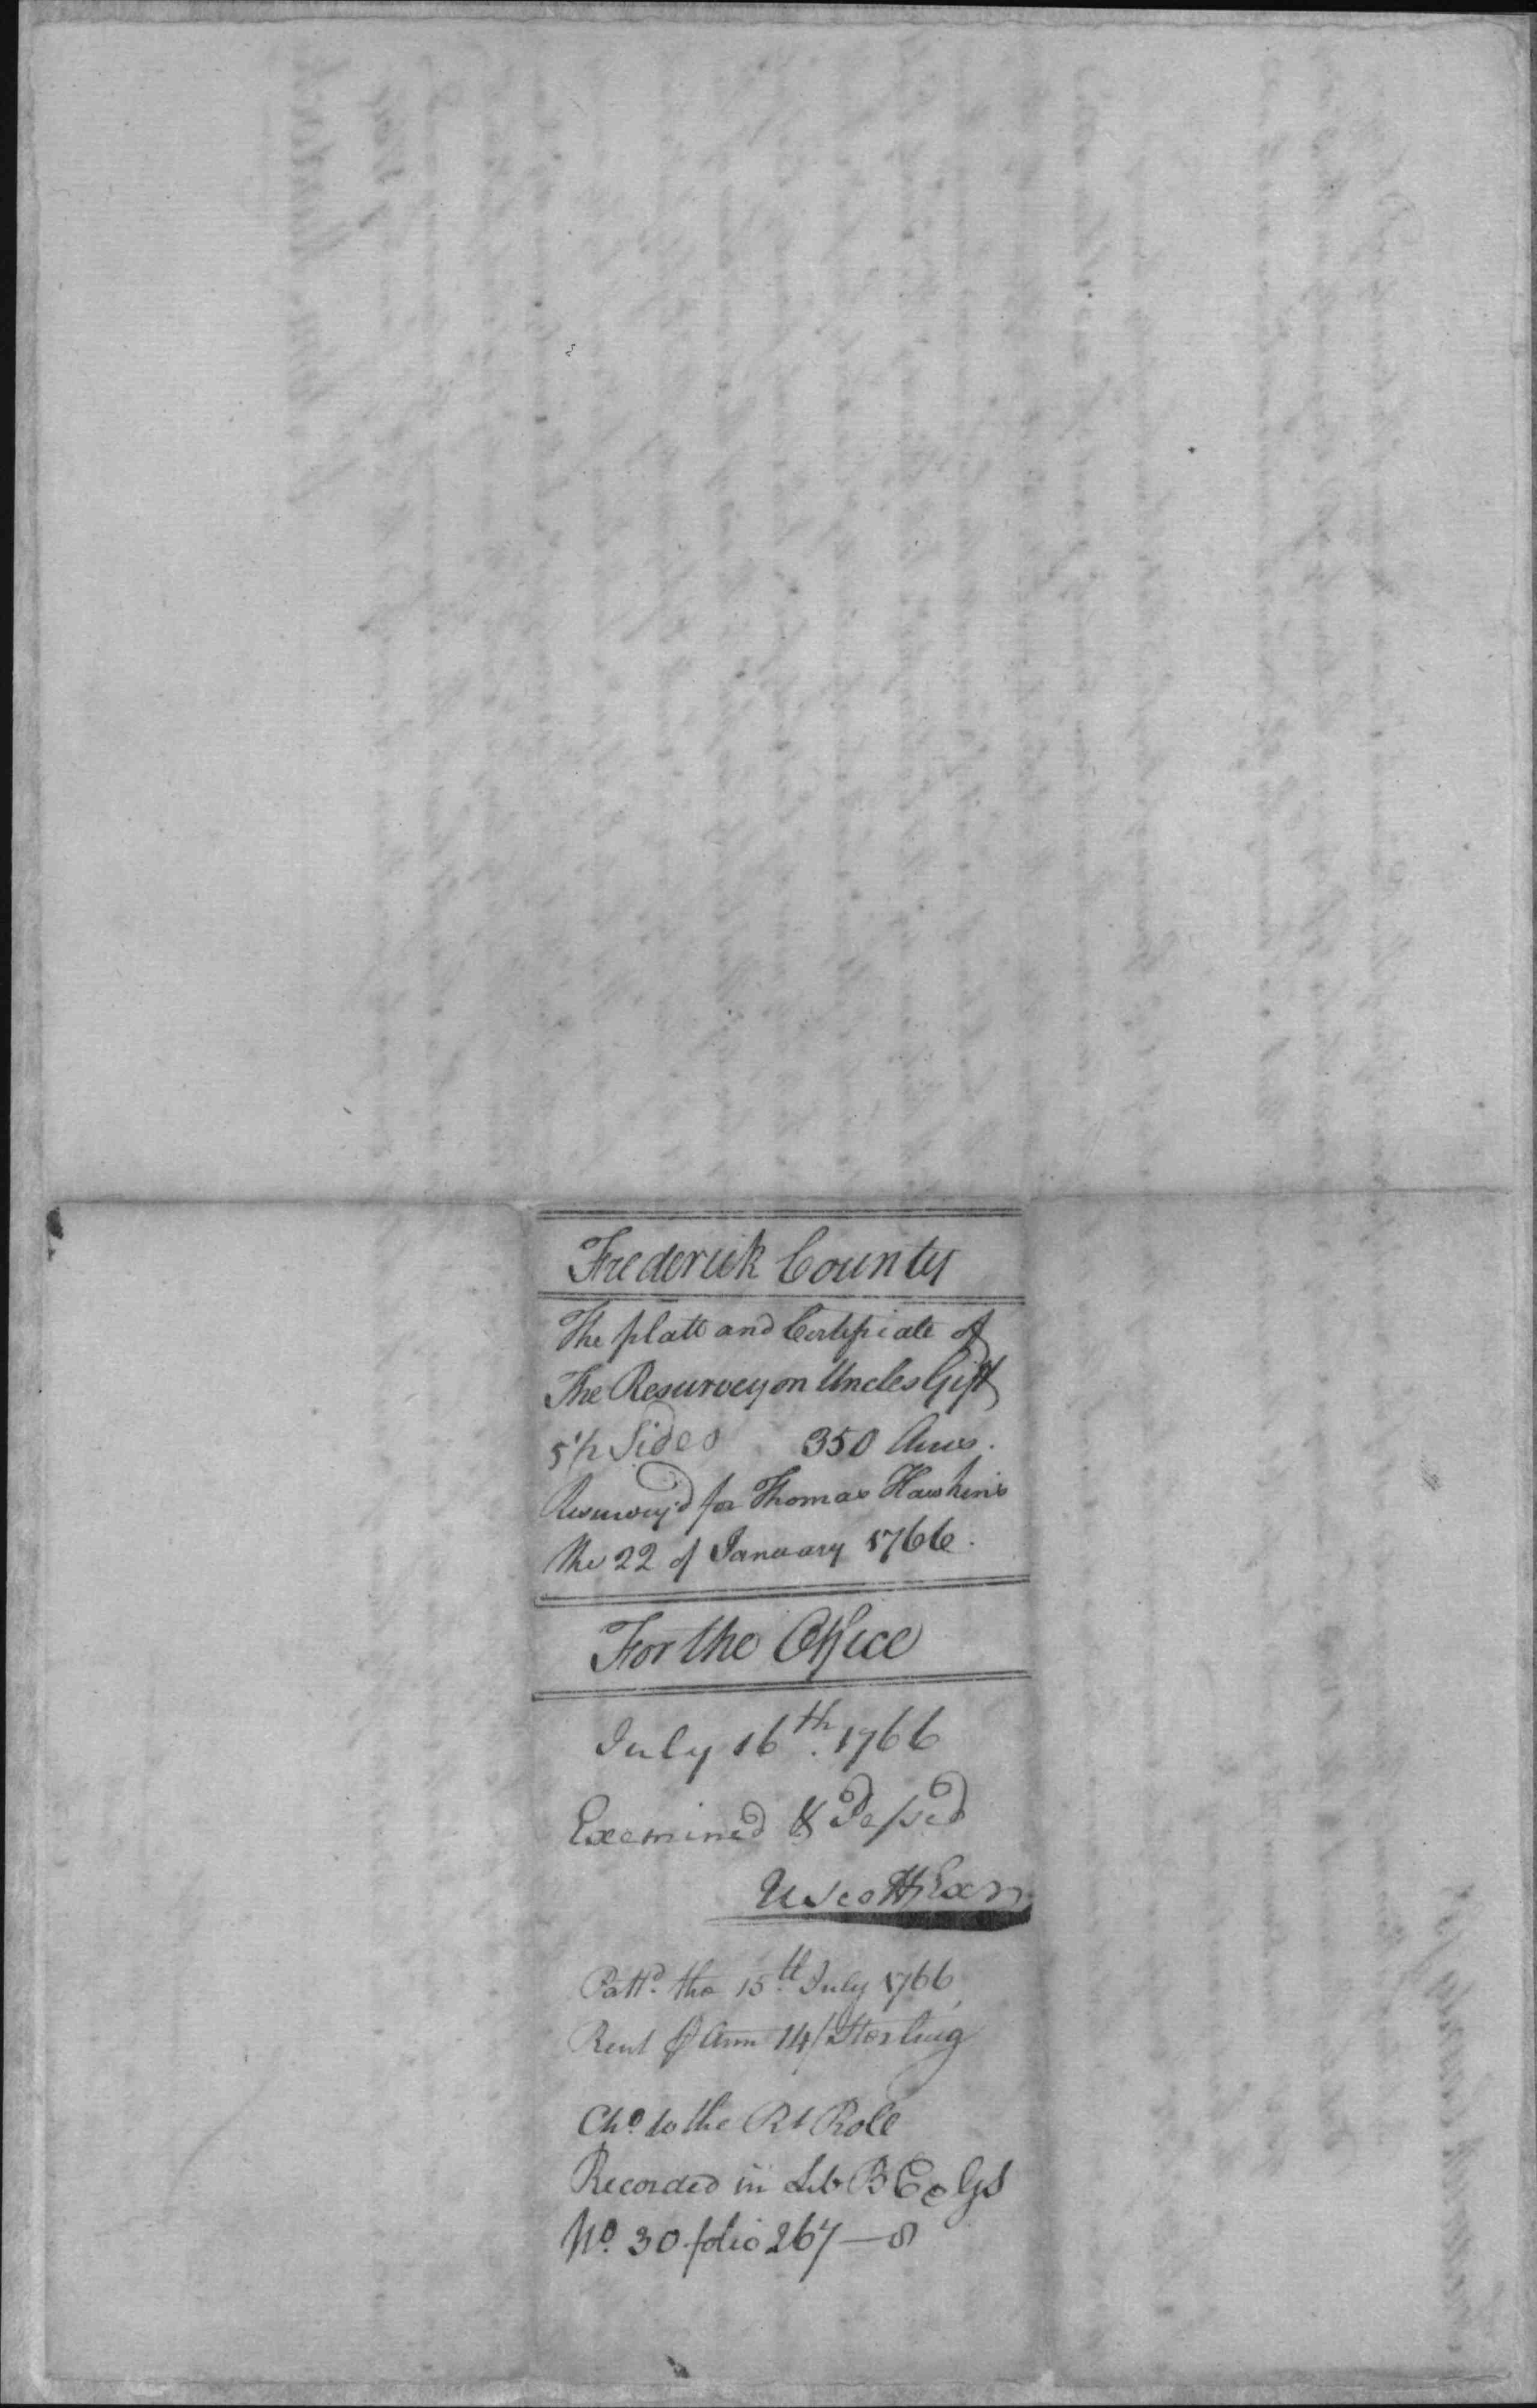 Frederick County
The platt and Certificate of
The Resurvey on Uncles Gift
5 1/2 Sides 350 Acres.
Resurvey'd for Thomas Hawkins
the 22 of January 1766.
For the Office
July 16th. 1766
Examined & Passed
U Scott Exr
Pattd. the 15th July 1766
Rent ⅌ Ann 14/ Sterling
Chd. to the Rt Role
Recorded in Lib B C & GS
No. 30 folio 267—8